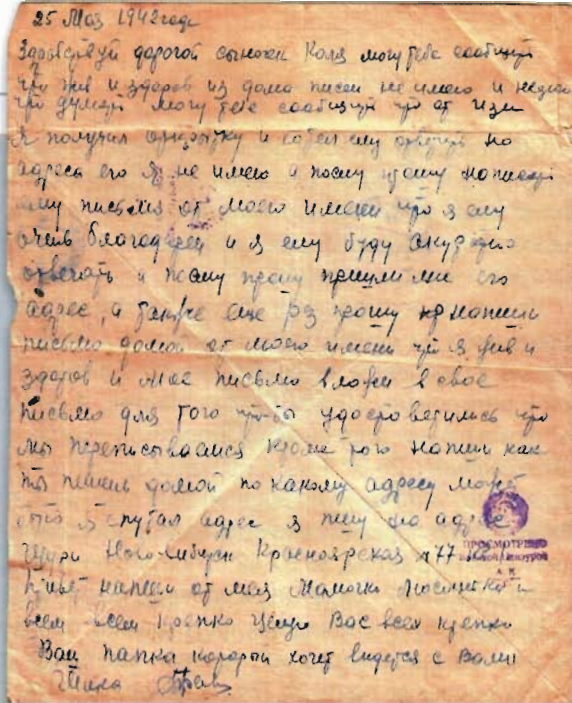 25 Мая 1942 года
Здравствуй дорогой сыночек Коля могу тебе сообщить
что жив и здоров из дома писем не имею и незнаю
что думать могу тебе сообщить что от
Я получил открытку и хотел ему ответить но
адреса его я не имею и посму прошу написать
ему письмо от моего имени что я ему
очень благодарен и я ему буду акуратно
отвечать и посму прошу пришли мне его
адрес, а также еще раз прошу напиши
письмо домой от моего имени что я жив и
здоров и мое письмо вложи в свое
письмо для того чтобы удостоверились что
мы переписываемся кроме того напиши как
ты пишешь домой по какому адресу может
быто я спутал адрес я пишу на адрес
Ново-Сибирск Красноярская 77
ПРОСМОТРЕНО
Привет напиши от меня Мамочки и
всем всем крепко целую Вас всех крепко
Ваш папка который хочет видется с Вами